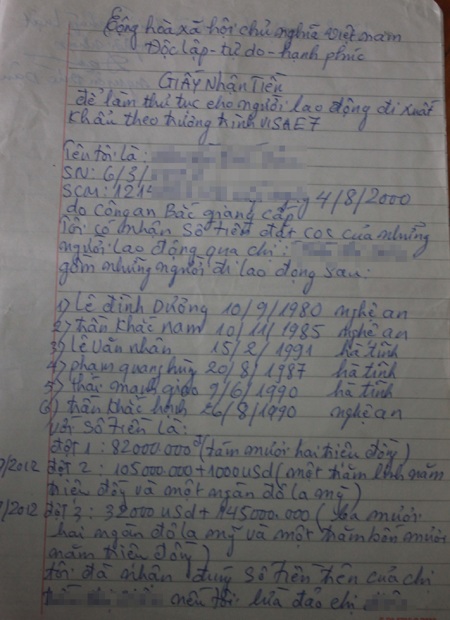 Cộng hòa xã hội chủ nghĩa Việt nam
Độc lập - tự do - hạnh phúc
GIẤY Nhận TIỀN
để làm thủ tục cho người lao động đi xuất
khẩu theo trương trình VISA E7
Tên tôi là :
SN: 6/3/
SCM: 121 4/8/2000
do Công an Bắc giang cấp
Tôi có nhận số tiền đặt cọc của những
người lao động qua chị :
gồm những người đi lao động sau:
1) Lê đình Dương 10/9/1980 nghệ an
2) trần Khắc nam 10/11/1985 nghệ an
3) Lê văn nhân 15/2/1991 hà tĩnh
4) phạm quang hùng 20/8/1987 hà tĩnh
5) thái mạnh giáo 9/6/1990 hà tĩnh
6) trần khắc 26/8/1990 nghệ an
với số tiền là:
đợt 1 : 82000.000đ (tám mươi hai triệu đồng)
/2012 đợt 2 : 105000.000 + 1000 usd (một trăm linh năm
triệu đồng và một ngàn đô la mỹ)
/2012 đợt 3 : 32000 usd + 145000.000 (ba mươi
hai ngàn đô la mỹ và một trăm bốn mươi
năm triệu đồng)
tôi đã nhận đúng số tiền trên của chị
nếu tôi lừa đảo chị